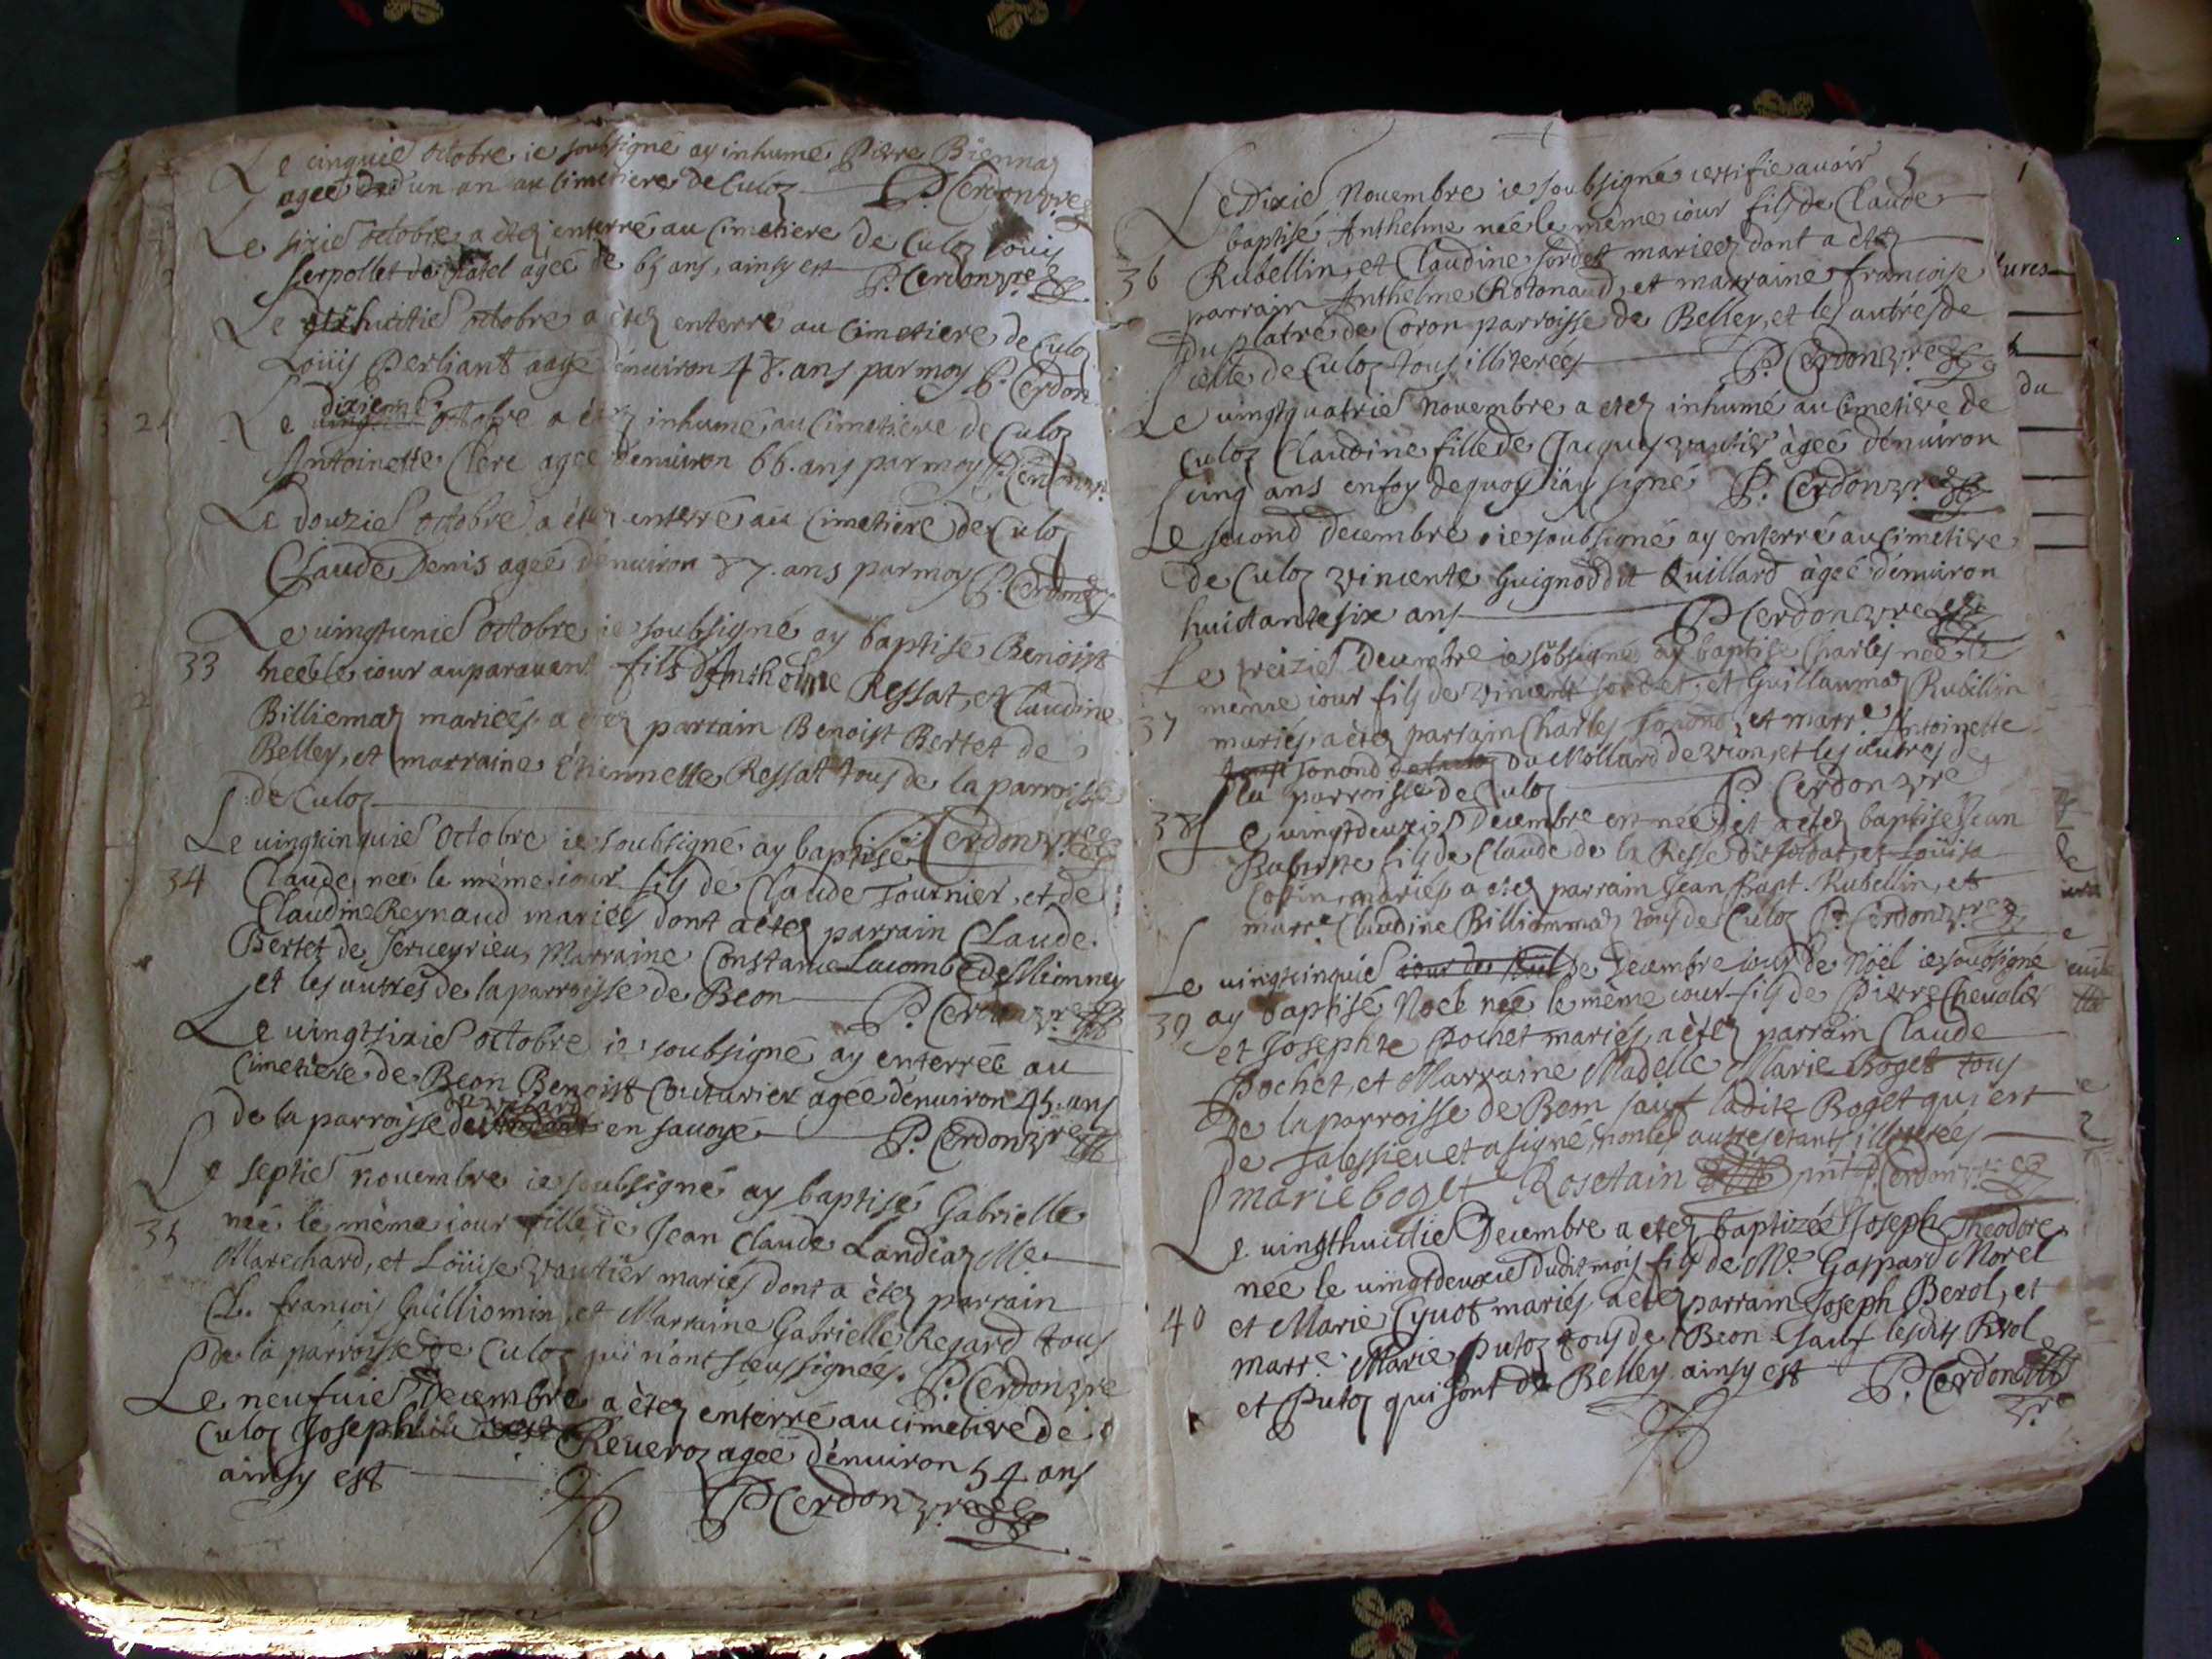 Le cinquie octobre ie soubsigné ay inhumé Pierre Biennaz
agée d'un an au cimetiere de Culoz P. Cerdon vre
Le sixie octobre a étéz enterré au cimetiere de Culoz Louis
Serpollet de agée de 65 ans, ainsy est P. Cerdon vre
Le dixhuictie octobre a étéz enterré au cimetiere de Culoz
Loüis Perliant aagé d'enuiron 48. ans par moy P. Cerdon
dixieme
Le octobre a étéz inhumé au cimetiere de Culoz
Antoinette Clerc agée d'enuiron 66. ans par moy P. Cerdon vre
Le douzie octobre a étéz enterré au cimetiere de Culoz
Claude Denis agée d'enuiron 87. ans par moy P. Cerdon
Le uingtunie octobre ie soubsigné ay baptisé Benoist
33 neé le iour auparauent fils d'Anthelme Ressat, et Claudine
Billiemaz mariés, a étéz parrain Benoist Bertet de
Belley, et marraine Etiennette Ressat tous de la parroisse
de Culoz P. Cerdon vre
Le uingtcinquie octobre ie soubsigné ay baptisé
34 Claude neé le mème iour fils de Claude Tournier, et de
Claudine Reynaud mariés dont a étéz parrain Claude
Bertet de Serueyrieu, Marraine Constance Lacombe de Mionney
et les autres de la parroisse de Beon P. Cerdon vre
Le uingtsixie octobre ie soubsigné ay enterréé au
cimetiere de Beon Benoist Couturier agée d'enuiron 45. ans
de la parroisse de en sauoye P. Cerdon vre
Le septie nouembre ie soubsigné ay baptisé Gabrielle
35 neé le mème iour fille de Jean Claude Landiaz Me
Marechard, et Loüise Vautier mariés dont a étéz parrain
Cl. françois Guilliomin, et Marraine Gabrielle Regard tous
de la parroisse de Culoz qui n'ont sceus signéés. P. Cerdon vre
Le neufuie Decembre a étéz enterré au cimetiere de
Culoz Joseph Reueroz agée d'enuiron 54 ans
ainsy est P. Cerdon vre
5
Le Dixie Nouembre ie soubsigné certifie auoir
baptisé Anthelme neé le mème iour fils de Claude
36 Rubellin, et Claudine sordet mariéez dont a étéz
parrain Anthelme Rotonaud, et marraine françoise
du platre de Coron parroisse de Belley, et les autres de
celle de Culoz tous illiterées P. Cerdon vre
Le uingtquatrie Nouembre a étéz inhumé au cimetiere de
Culoz Claudine fille de Jacques vautier àgée d'enuiron
cinq ans en foy dequoy i'ay signé P. Cerdon vre
Le second Decembre ie soubsigné ay enterré au cimetiere
de Culoz Vincente Guignod dit Quillard àgée d'enuiron
huictante six ans P. Cerdon vre
Le treizie Decembre ie sobsigné ay baptisé Charles neé le
mème iour fils de Vincent sordet, et Guillaumaz Rubellin
37 mariés, a étéz parrain Charles Jonond, et marre Antoinette
Jonond du Mollard de Vion, et les autres de
la parroisse de Culoz P. Cerdon vre
38 Le uingtdeuxie Decembre en neé et a étéz baptisé Jean
Babtiste fils de Claude de la Resse dit soldat, et Loüisa
Cotin, mariés a étéz parrain Jean Bapt. Rubellin, et
marre Claudine Billiommaz tous de Culoz P. Cerdon vre
Le uingtcinquie de Decembre iour de Noël ie soubsigné
39 ay baptisé Noël neé le mème iour fils de Pierre Cheualier
et Josephte Pochet mariés, a étéz parrain Claude
Pochet, et Marraine Madelle Marie Boget tous
de la parroisse de Beon sauf ladite Boget qui est
de Talessieu et a signé, non les autres étants illiterées
marie boget Rosetain pnt P. Cerdon vre
Le uingthuictie Decembre a étéz baptizée Joseph Theodore
neé le uingtdeuxie dudit mois fils de Mr. Gaspard Morel
40 et Marie Cyuot mariés a étéz parrain Joseph Berol, et
marre Marie Putoz tous de Beon sauf lesdits Berol
et Putoz qui sont de Belley ainsy est P. Cerdon
vre
ures
du